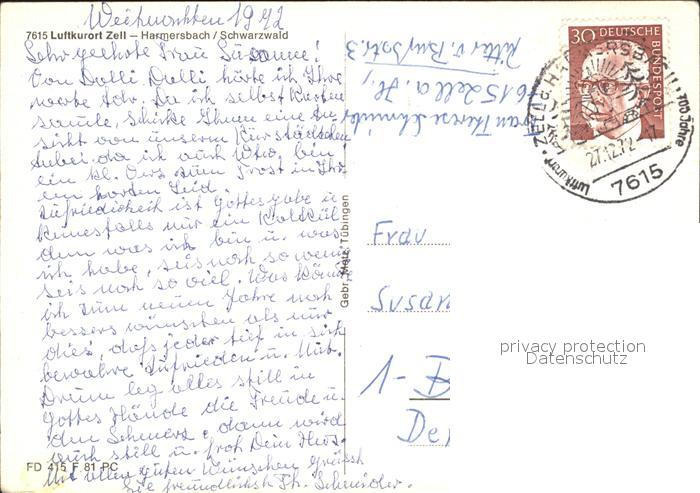 Weihnachten 1972
7615 Luftkurort Zell – Harmersbach / Schwarzwald
Sehr geehrte Frau Susanne!
Von Dalli Dalli hörte ich Ihre
werte Adr. Da ich selbst Karten
sammle, schicke Ihnen eine An-
sicht von unserm Kurstädtchen
anbei. da ich auch Wtw. bin
ein kl. Vers zum Trost in Ihr
harten Leid.
Zufriedigkeit ist Gottesgabe u.
keinesfalls nur ein Kalkül
dem was ich bin u. was
ich habe, seis noch so wenig
seis noch so viel. Was könnte
ich zum neuen Jahre noch
bessers wünschen als nur
dies, dass jeder tief in sich
bewahre Zufrieden u. Mut.
Drum leg alles still in
Gottes Hände die Freude u.
den Schmerz, dann wird
auch still u. froh Dein Herz.
Mit allen guten Wünschen grüsst
Sie freundlichst Th. Schnider.
FD 415 F 81 PC
Gebr. Metz, Tübingen
7615 Zell a. H.
Ritter v. Bußstr. 3
30 DEUTSCHE BUNDESPOST
27.12.72
7615
Frau
Susan
1-B
De
privacy protection
Datenschutz